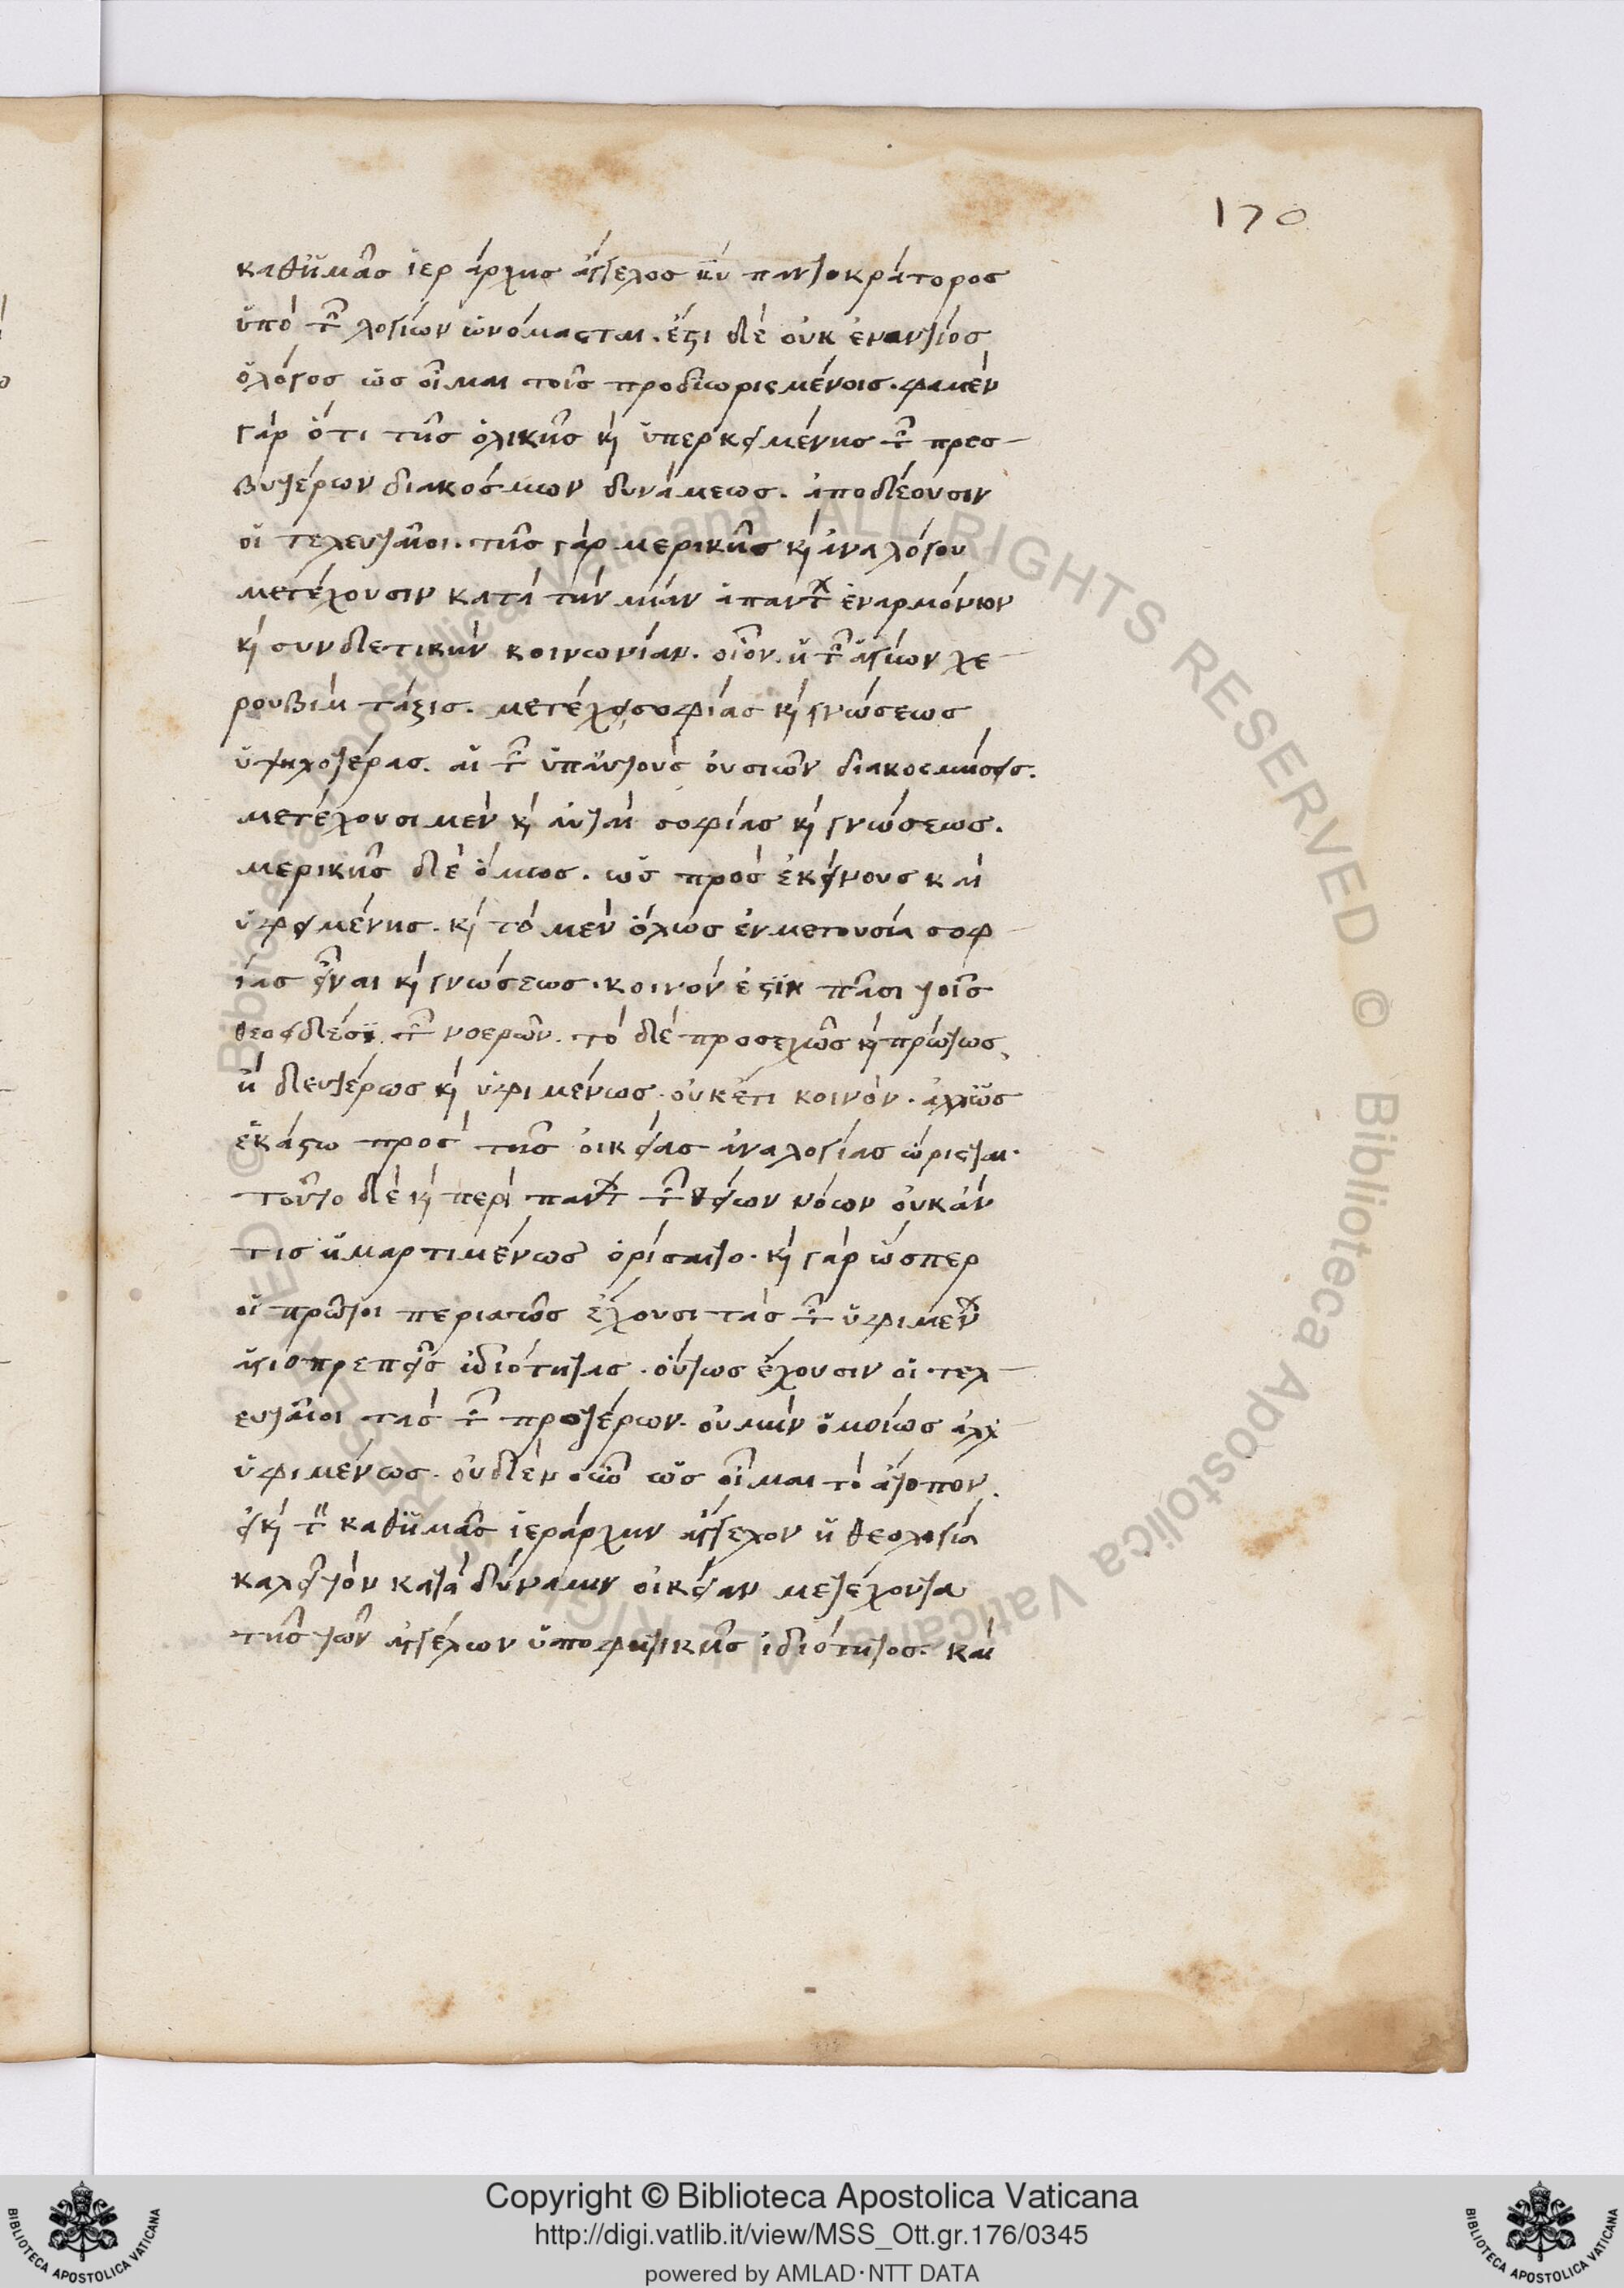 170
καθ' ἡμᾶς ἱεράρχης ἄγγελος κ̅υ̅ παντοκράτορος
ὑπὸ τῶν λογίων ὠνόμασται. ἔστι δὲ οὐκ ἐναντίος
ὁ λόγος ὡς οἶμαι τοῖς προδιωρισμένοις. φαμὲν
γὰρ ὅτι τῆς ὁλικῆς κ̀ ὑπερκειμένης τῶν πρεσ-
βυτέρων διακόσμων δυνάμεως. ἀποδέουσιν
οἱ τελευταῖοι. τῆς γὰρ μερικῆς κ̀ ἀναλόγου
μετέχουσιν κατὰ τὴν μίαν ἁπάντων ἐναρμόνιον
κ̀ συνδετικὴν κοινωνίαν. οἷον. ἡ τῶν ἁγίων χε-
ρουβὶμ τάξις. μετέχει σοφίας κ̀ γνώσεως
ὑψηλοτέρας. αἱ τῶν ὑπ' αὐτοὺς οὐσιῶν διακοσμήσεις.
μετέχουσι μὲν κ̀ αὐταὶ σοφίας κ̀ γνώσεως.
μερικῆς δὲ ὅμως. ὡς πρὸς ἐκείνους καὶ
ὑφειμένης. κ̀ τὸ μὲν ὅλως ἐν μετουσία σοφ-
ίας εἶναι κ̀ γνώσεως. κοινόν ἐστι πᾶσι τοῖς
θεοειδέσι τῶν νοερῶν. τὸ δὲ προσεχῶς κ̀ πρώτως,
ἢ δευτέρως κ̀ ὑφιμένως. οὐκέτι κοινόν. ἀλλ' ὡς
ἑκάστω πρὸς τῆς οἰκείας ἀναλογίας ὥρισται.
τοῦτο δὲ κ̀ περὶ πάντων τῶν θείων νόων οὐκ ἄν
τις ἡμαρτιμένως ὁρίσαιτο. κ̀ γὰρ ὥσπερ
οἱ πρῶτοι περιατῶς ἔχουσι τὰς τῶν ὑφιμένων
ἁγιοπρεπεῖς ἰδιότητας. οὕτως ἔχουσιν οἱ τελ-
ευταῖοι τὰς τῶν προτέρων. οὐ μὴν ὁμοίως ἀλλ'
ὑφιμένως. οὐδὲν οὖν ὡς οἶμαι τὸ ἄτοπον.
εἰ κ̀ τὸν καθ' ἡμᾶς ἱεράρχην ἄγγελον ἡ θεολογία
καλεῖ τὸν κατὰ δύναμιν οἰκείαν μετέχοντα
τῆς τῶν ἀγγέλων ὑποφητικῆς ἰδιότητος. καὶ
Copyright © Biblioteca Apostolica Vaticana
http://digi.vatlib.it/view/MSS_Ott.gr.176/0345
powered by AMLAD·NTT DATA